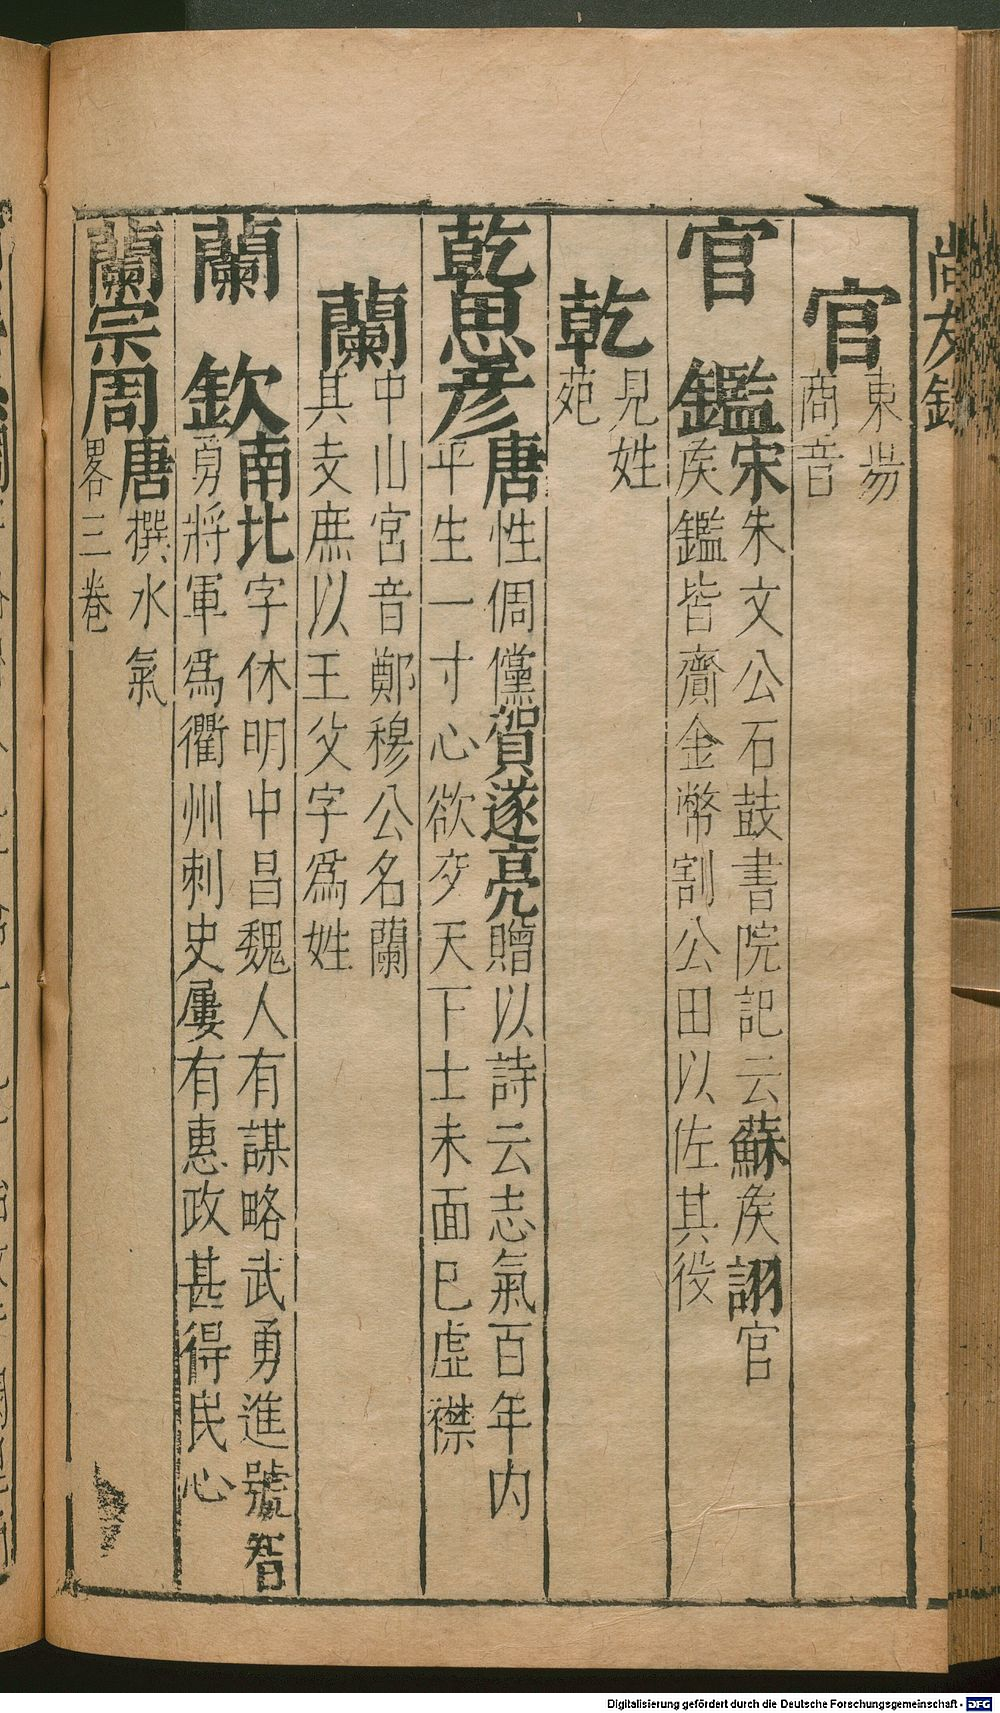 尚友錄
官
東昜
商音
官鑑
宋朱文公石鼓書院記云蘇矦詡官
矦鑑皆齎金幣割公田以佐其役
乾
見姓
苑
乾思彦
唐性倜儻賀遂亮贈以詩云志氣百年内
平生一寸心欲交天下士未面已虛襟
蘭
中山宮音鄭穆公名蘭
其支庶以王父字爲姓
蘭欽
南北字休明中昌魏人有謀略武勇進號智
勇將軍爲衢州刺史屢有惠政甚得民心
蘭宗周
唐撰水氣
畧三卷
Digitalisierung gefördert durch die Deutsche Forschungsgemeinschaft - DFG